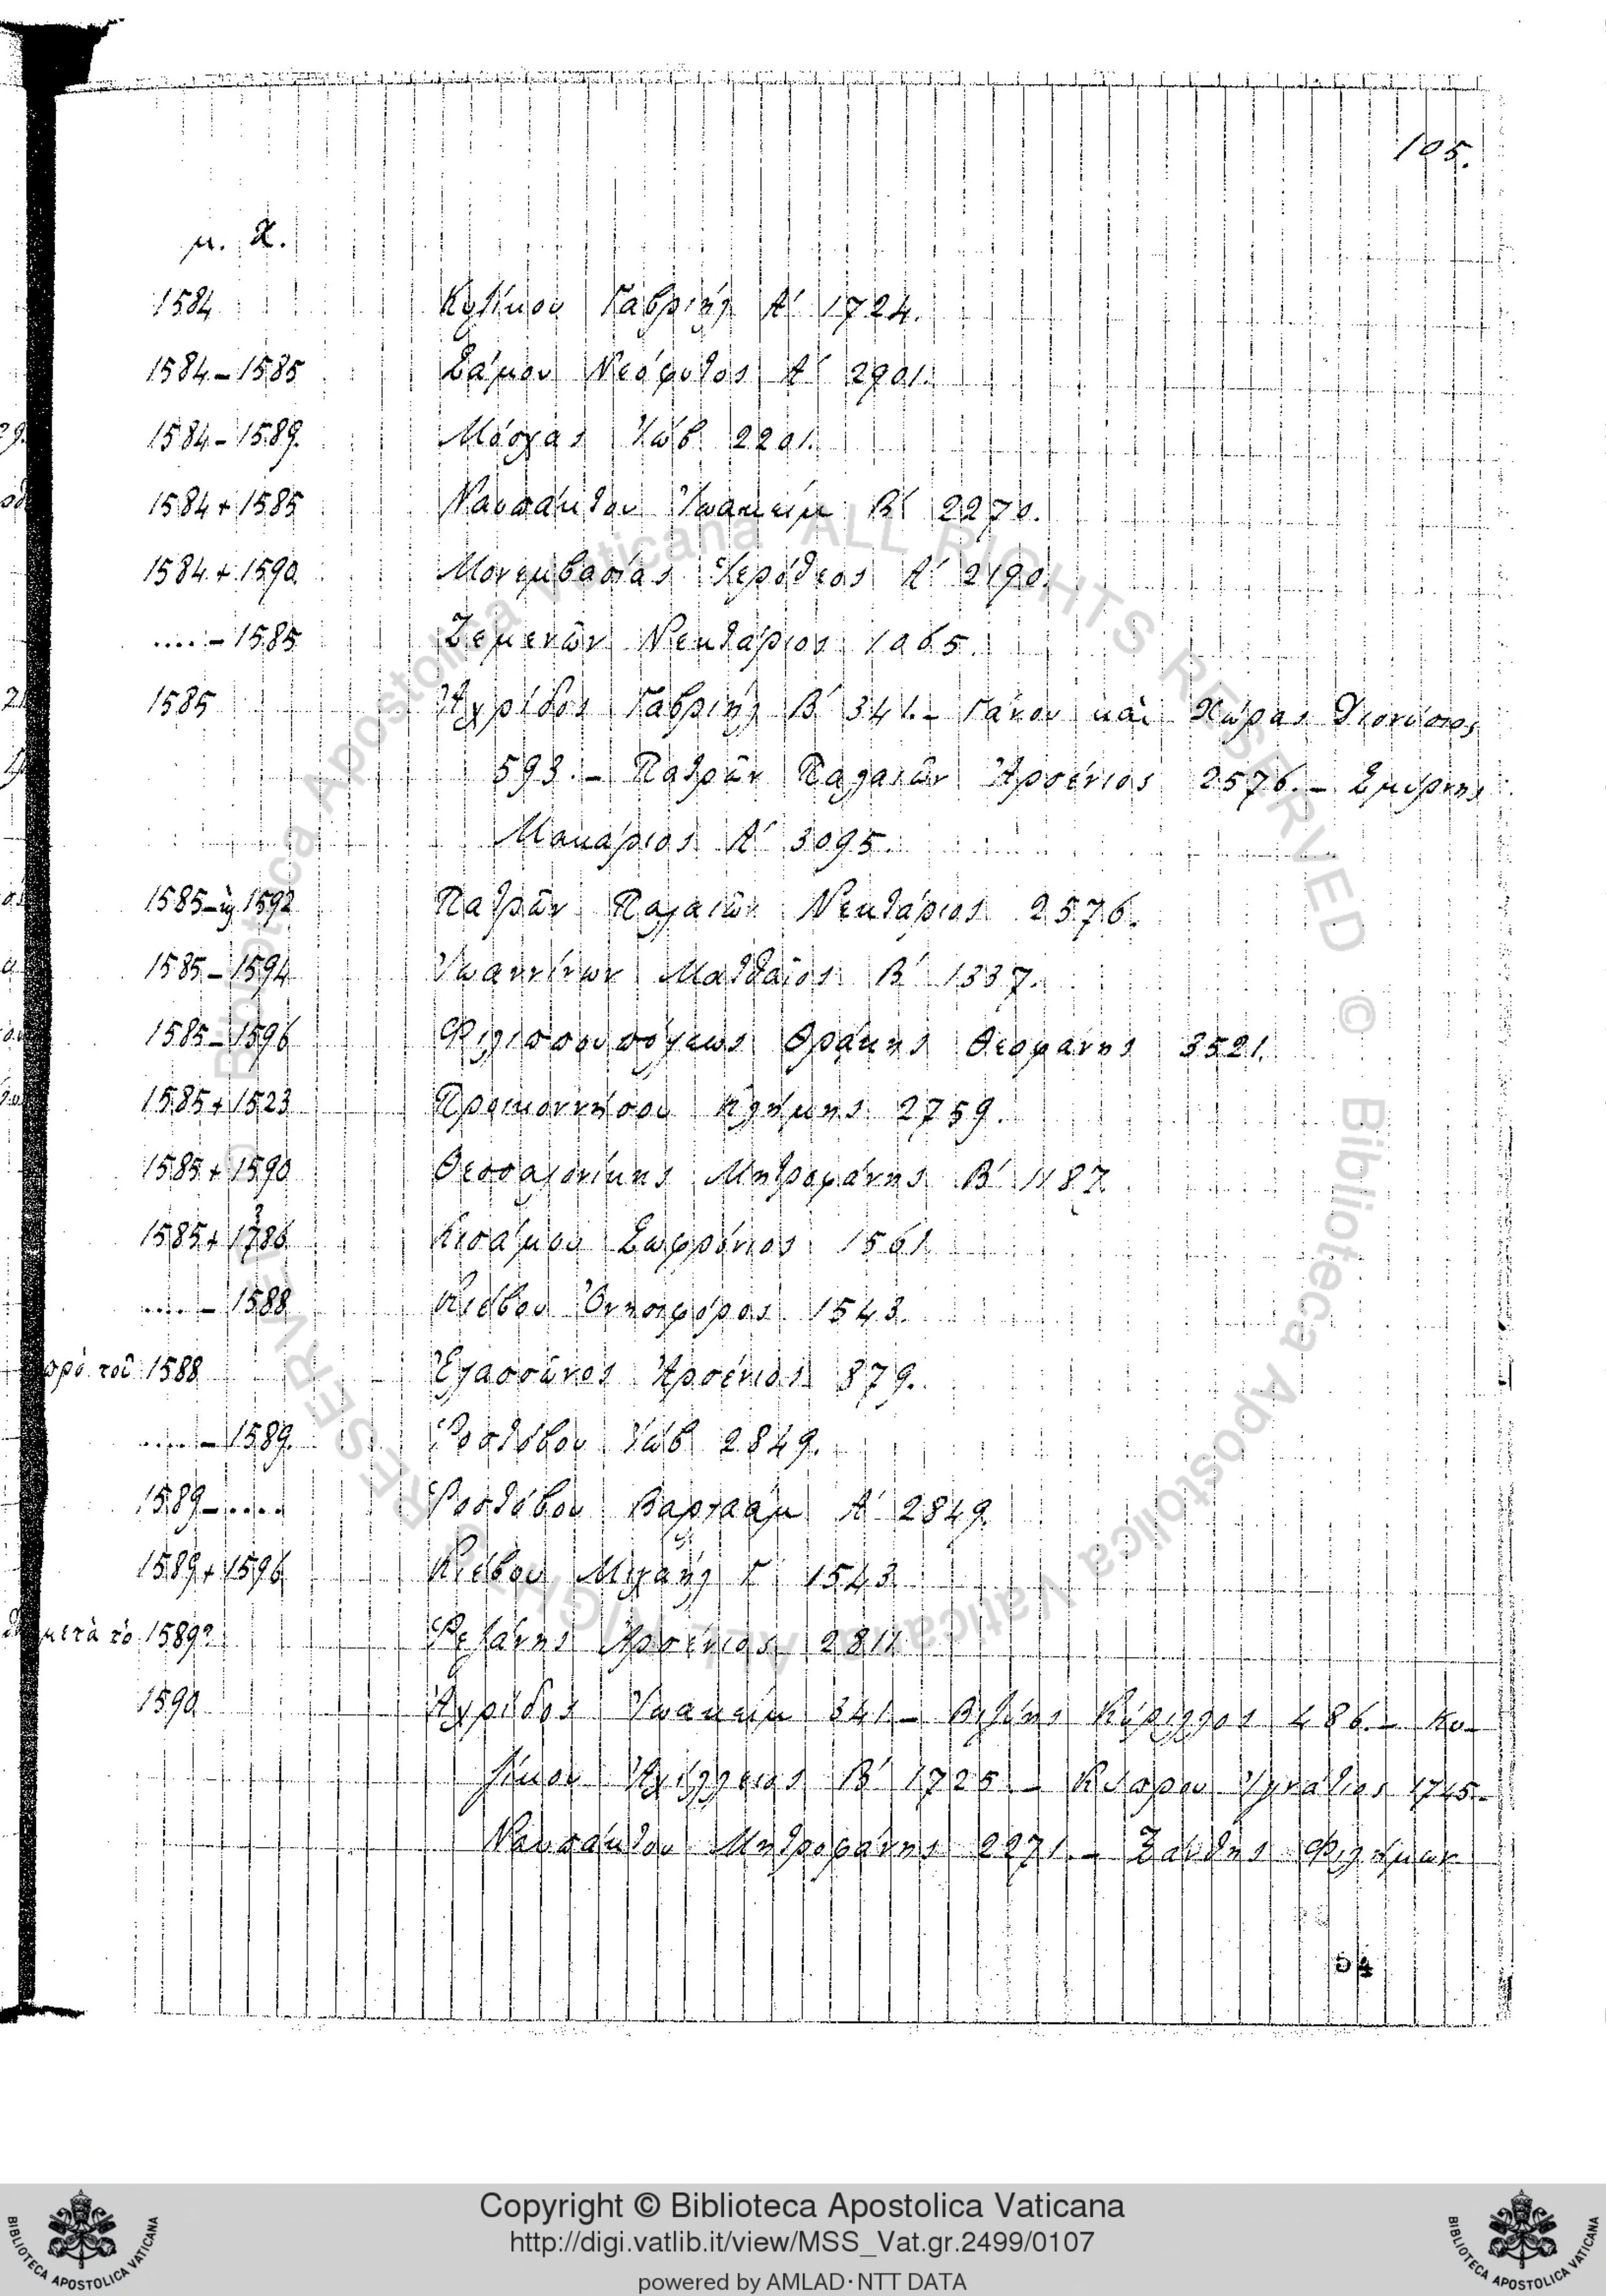 105.
μ. Χ.
1584 Κυζίκου Γαβριήλ Α' 1724.
1584-1585 Σάμου Νεόφυτος Α' 2901.
1584-1589. Μόσχας Ἰώβ 2201.
1584+1585 Ναυπάκτου Ἰωακείμ Β' 2270.
1584+1590. Μονεμβασίας Ἱερόθεος Α' 2190.
....-1585 Ζεμενῶν Νεκτάριος 1065.
1585 Ἀχρίδος Γαβριήλ Β' 341.- Γάνου καὶ Χώρας Διονύσιος
593.- Πατρῶν Παλαιῶν Ἀρσένιος 2576.- Σμύρνης
Μακάριος Α' 3095.
1585- 1592 Πατρῶν Παλαιῶν Νεκτάριος 2576.
1585-1594 Ἰωαννίνων Ματθαῖος Β' 1337.
1585-1596 Φιλιππουπόλεως Θράκης Θεοφάνης 3521.
1585+1523 Προικοννήσου Κλήμης 2759.
1585+1590 Θεσσαλονίκης Μητροφάνης Β' 1187.
1585+1786 Κισάμου Σωφρόνιος 1561.
....-1588 Κιέβου Ὀνησιφόρος 1543.
πρὸ τοῦ 1588 Ἐλασσῶνος Ἀρσένιος 879.
....-1589. Ῥοστόβου Ἰώβ 2849.
1589-.... Ῥοστόβου Βαρλαάμ Α' 2849.
1589+1596 Κιέβου Μιχαήλ Γ' 1543
μετὰ τὸ 1589? Ῥεζάνης Ἀρσένιος 2811
1590 Ἀχρίδος Ἰωακείμ 341.- Βιζύης Κύριλλος 486.- Κυ-
ζίκου Ἀχίλλειος Β' 1725.- Κύπρου Ἰγνάτιος 1745.-
Ναυπάκτου Μητροφάνης 2271.- Ξάνθης Φιλήμων
54
Copyright © Biblioteca Apostolica Vaticana
http://digi.vatlib.it/view/MSS_Vat.gr.2499/0107
powered by AMLAD·NTT DATA